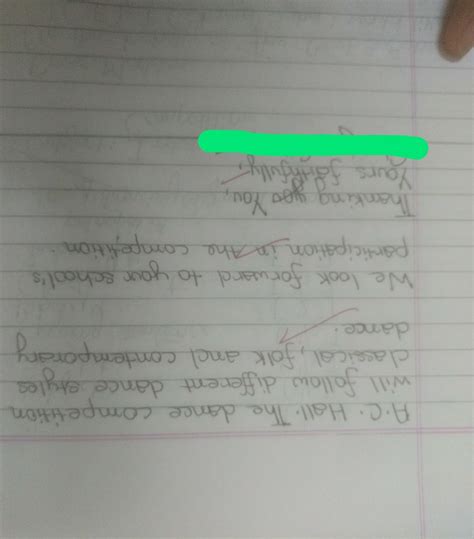 A.C. Hall. The dance competition
will follow different dance styles
classical, folk and contemporary
dance.
We look forward to your school's
participation in the competition.
Thanking You,
Yours faithfully,